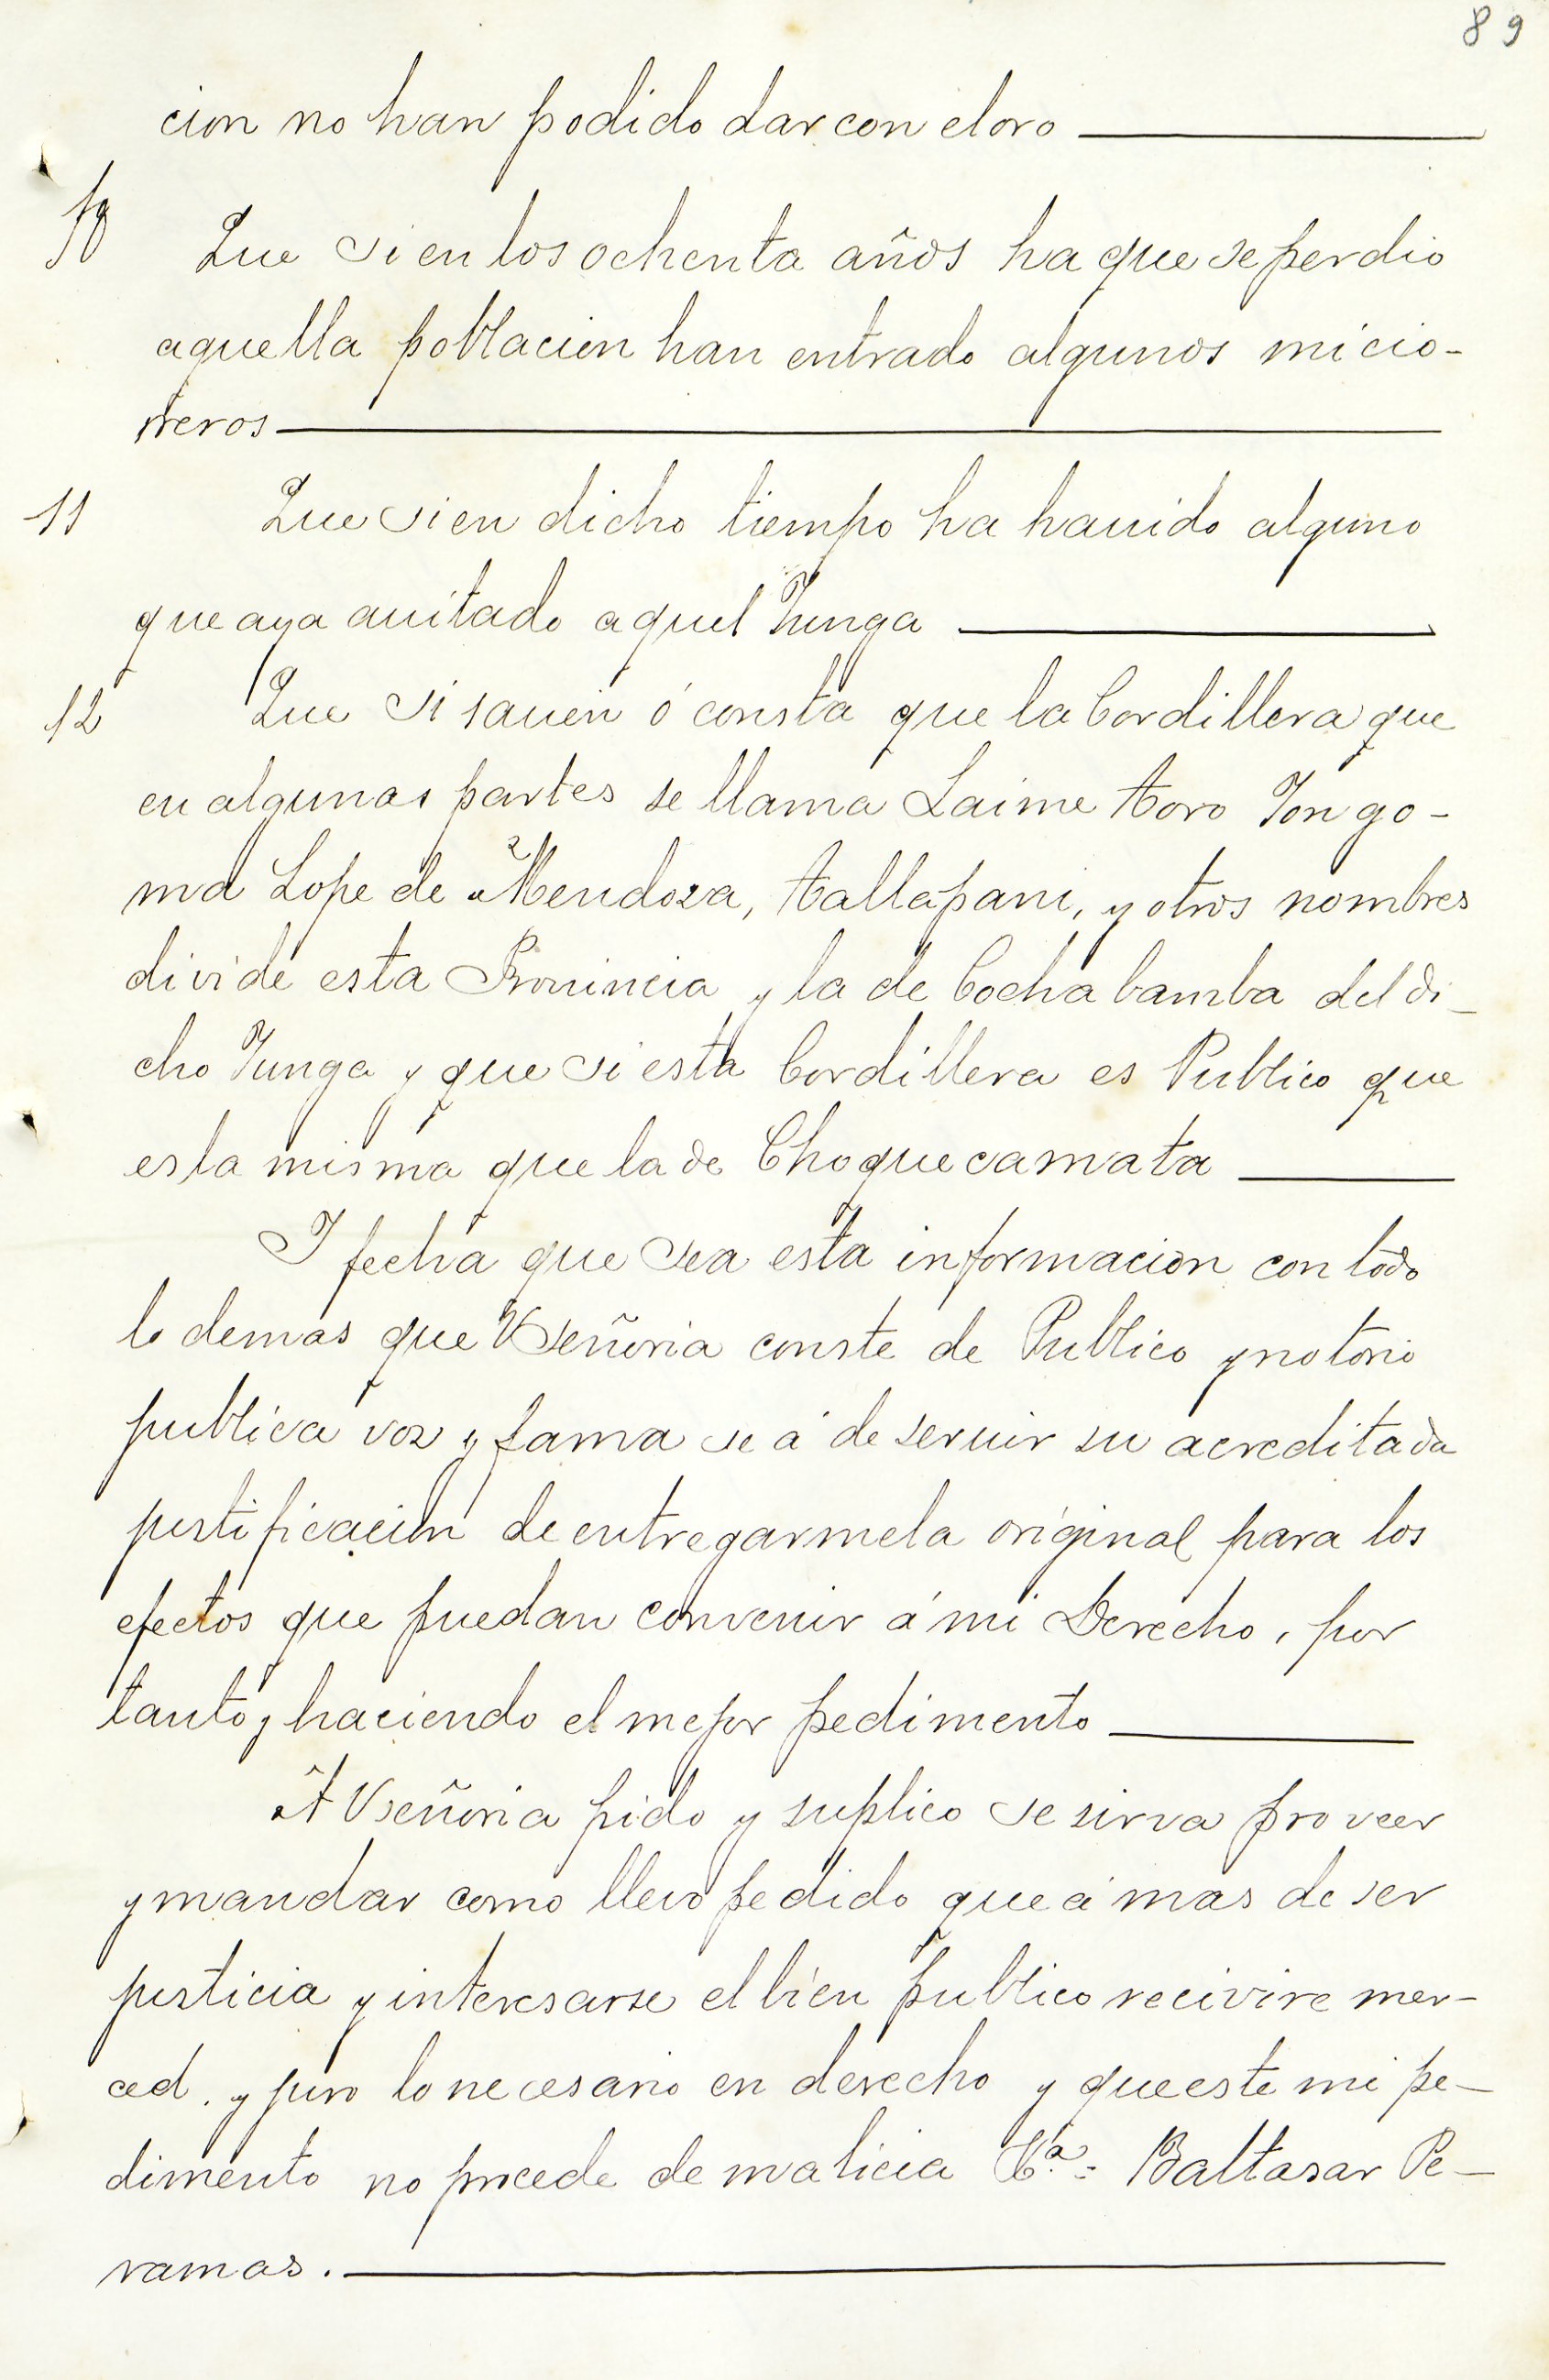 89
cion no han podido dar con el oro
10 Que si en los ochenta años ha que se perdio
aquella poblacion han entrado algunos micio-
neros
11 Que si en dicho tiempo ha hauido alguno
que aya auitado aquel Yunga
12 Que si sauen ó consta que la Cordillera que
en algunas partes se llama Laime Aoro Yongo-
ma Lope de Mendoza, Aallapani, y otros nombres
divide esta Prouincia y la de Cochabamba del di-
cho Yunga y que si esta Cordillera es Publico que
es la misma que la de Choquecamata
I fecha que sea esta informacion con todo
lo demas que VSeñoria conste de Publico y notorio
publica voz y fama se á de seruir su acreditada
justificacion de entregarmela original para los
efectos que puedan convenir á mi Derecho, por
tanto y haciendo el mejor pedimento
A Vseñoria pido y suplico se sirva proveer
y mandar como llevo pedido que á mas de ser
justicia y interesarse el bien publico recivire mer-
ced. y juro lo necesario en derecho y que este mi pe-
dimento no procede de malicia Ctª = Baltasar Pe-
ramas.